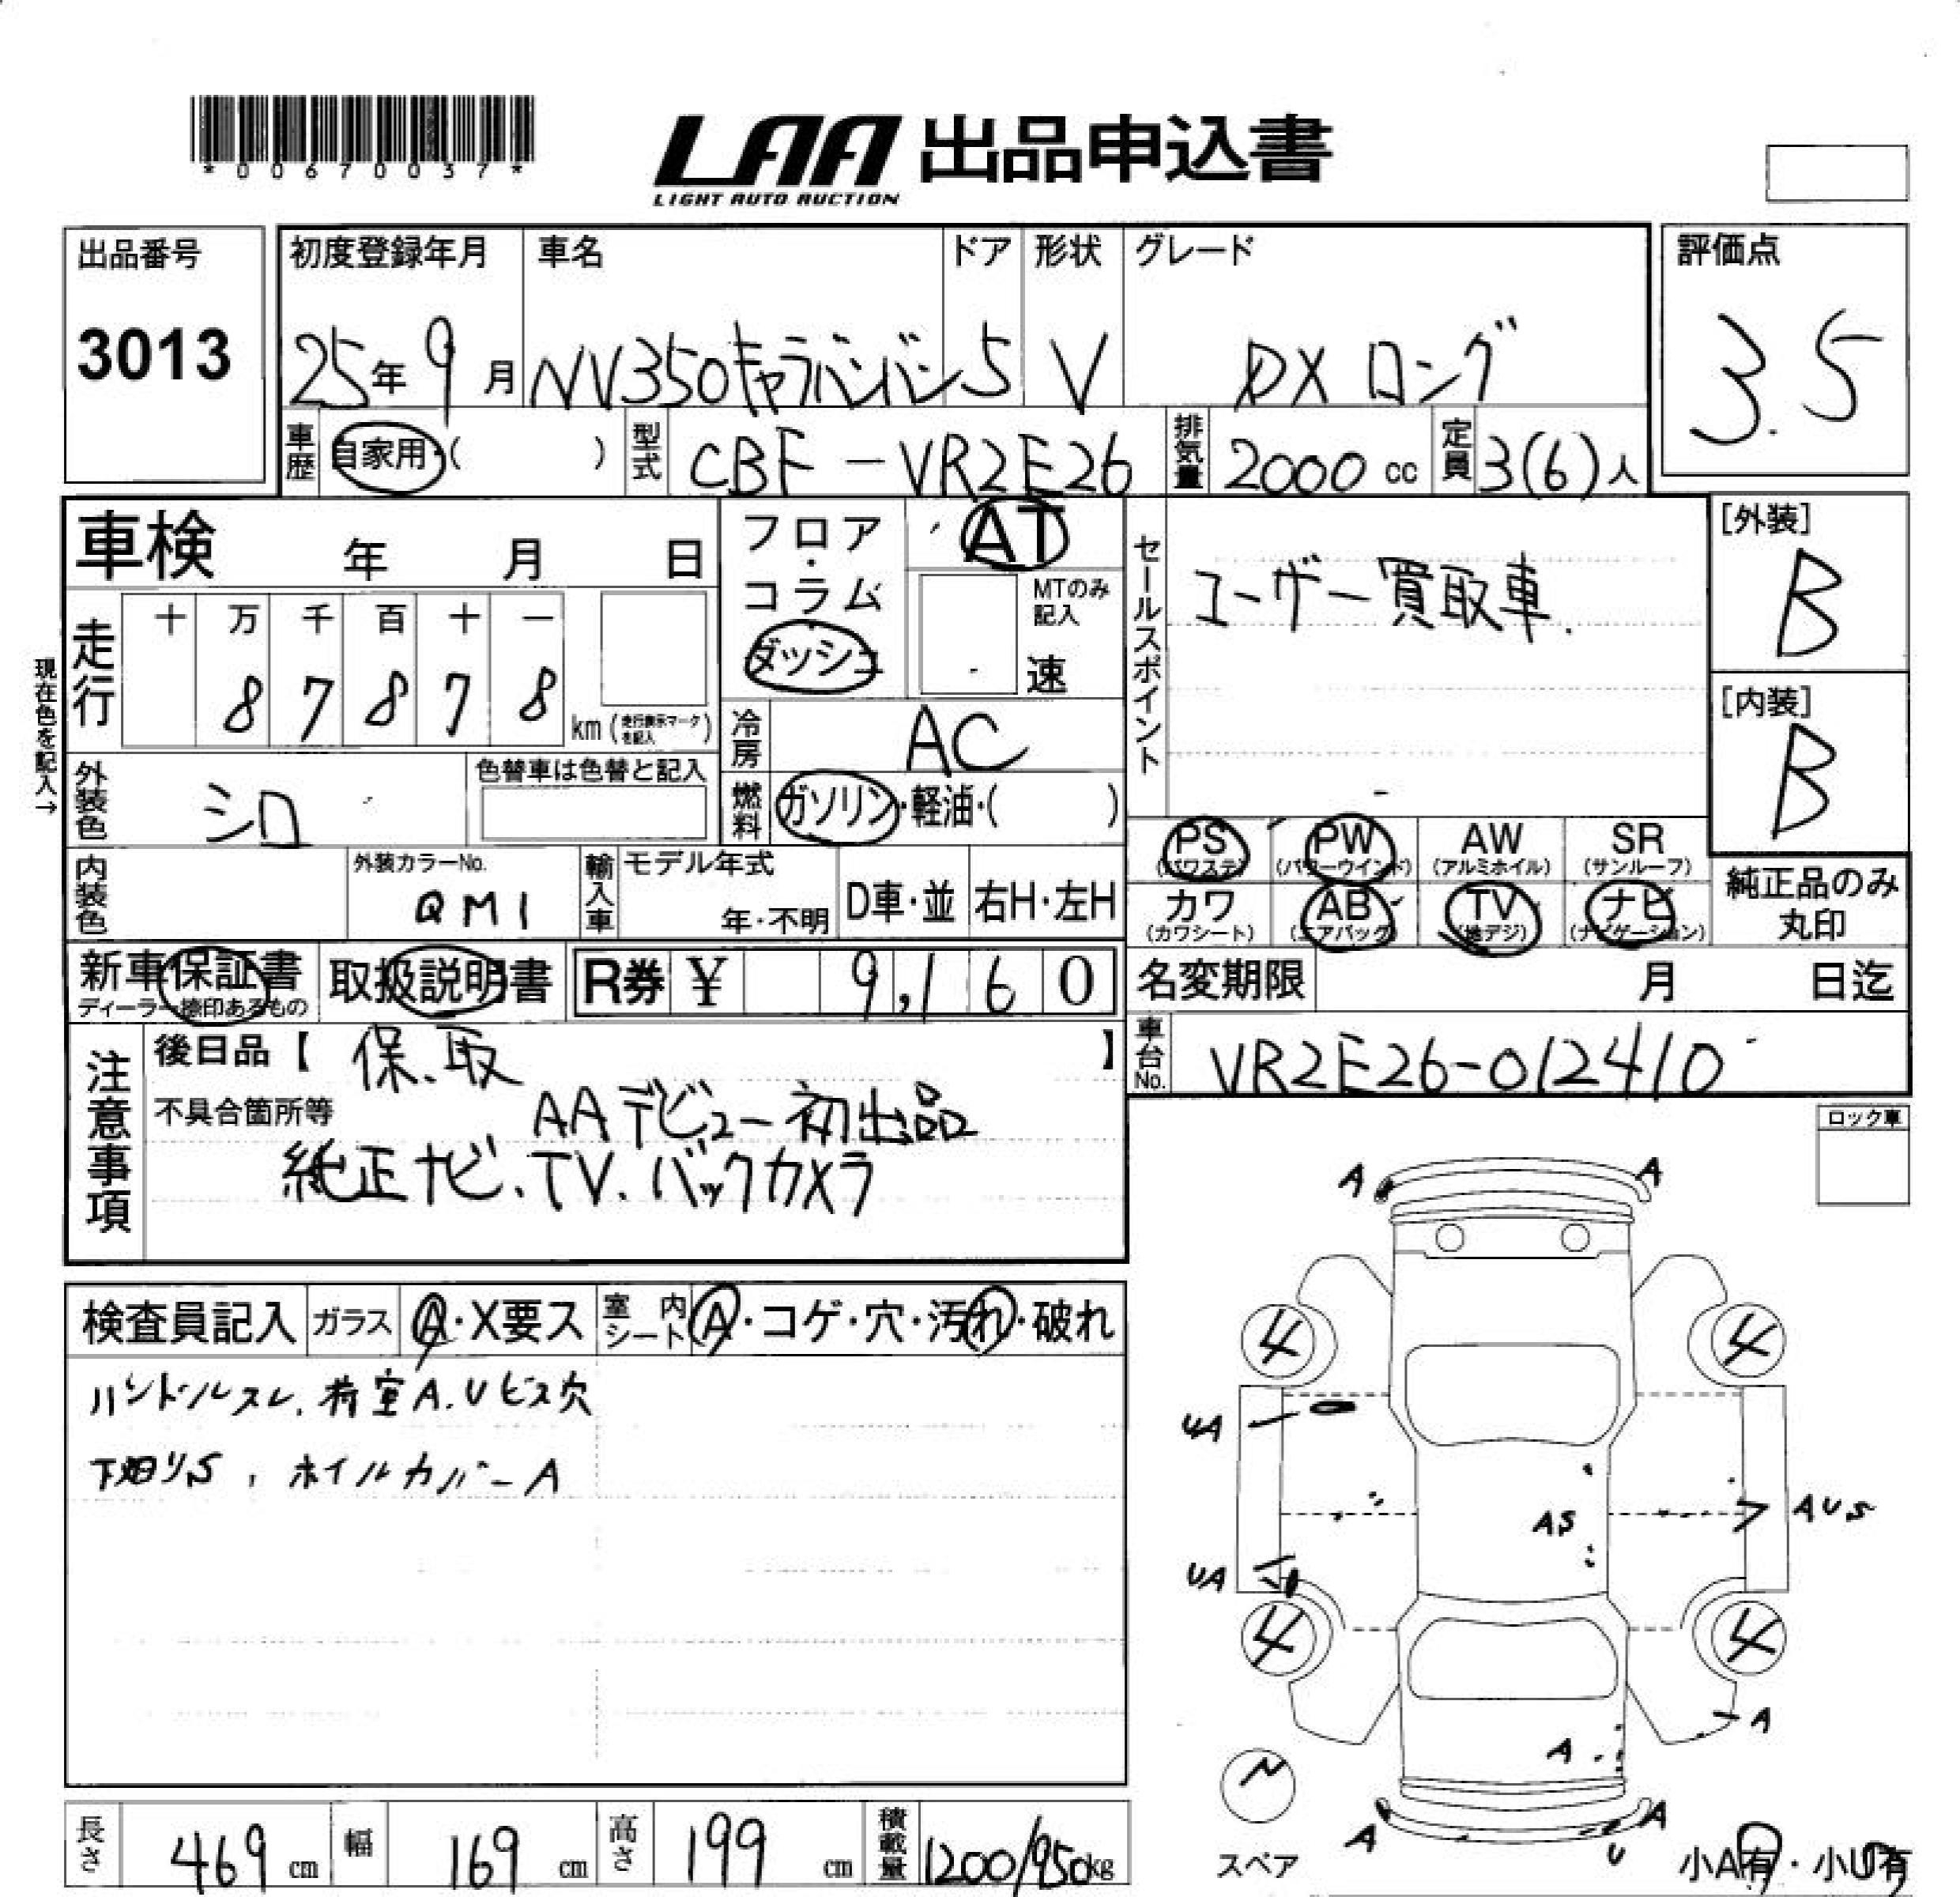 *00670037*
LAA 出品申込書
LIGHT AUTO AUCTION
出品番号 3013
初度登録年月 25年9月
車名 NV350キャラバンバン
ドア 5
形状 V
グレード DX ロング
評価点 3.5
車歴 自家用・( )
型式 CBF-VR2E26
排気量 2000 cc
定員 3(6)人
車検 年 月 日
フロア・コラム ダッシュ
AT
MTのみ記入
速
現在色を記入→
走行 十 万 千 百 十 一
8 7 8 7 8
km (走行表示マークを記入)
冷房 AC
燃料 ガソリン・軽油・( )
外装色 シロ
色替車は色替と記入
内装色
外装カラーNo. QM1
輸入車
モデル年式 年・不明
D車・並
右H・左H
セールスポイント
ユーザー買取車.
[外装] B
[内装] B
PS (パワステ)
PW (パワーウインド)
AW (アルミホイル)
SR (サンルーフ)
カワ (カワシート)
AB (エアバッグ)
TV (地デジ)
ナビ (ナビゲーション)
純正品のみ丸印
新車保証書
ディーラー捺印あるもの
取扱説明書
R券 ¥ 9,160
名変期限 月 日迄
車台No. VR2E26-012410
注意事項
後日品【 保、取 】
不具合箇所等
AAデビュー初出品
純正ナビ、TV、バックカメラ
ロック車
検査員記入
ガラス A・X要ス
室内シート A・コゲ・穴・汚れ・破れ
ハンドルスレ、荷室A.Uビス穴
下廻りS , ホイルカバーA
A A
4 4
UA
AS
AUS
UA
4 4
A
A
A
A
U
スペア
小A有・小U有
長さ 469 cm
幅 169 cm
高さ 199 cm
積載量 1200/950kg